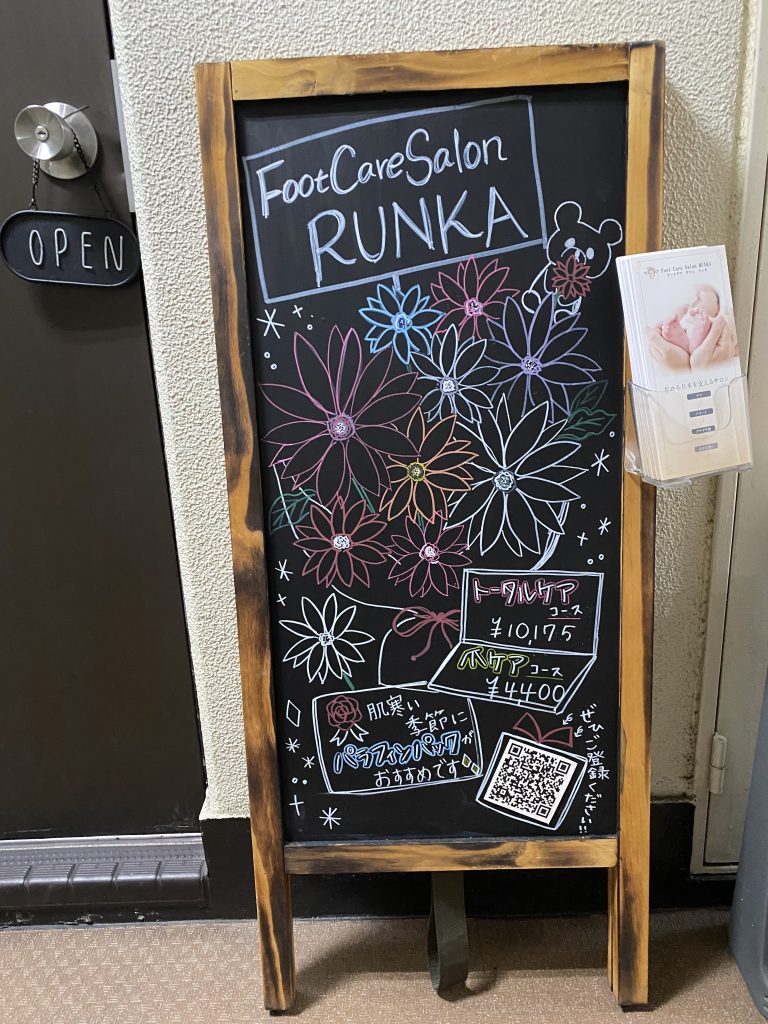 OPEN
FootCareSalon
RUNKA
Foot Care Salon RUNKA
足から日本を支えるサロン
トータルケア
コース
¥10,175
爪ケア コース
¥4,400
肌寒い
季節に
パラフィンパックが
おすすめです
ぜひご登録ください!!